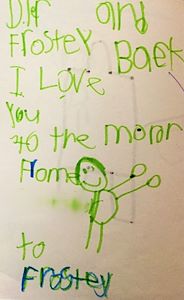 and
Frostey Back
I Love
You
to the moron
Frome
to
Frostey